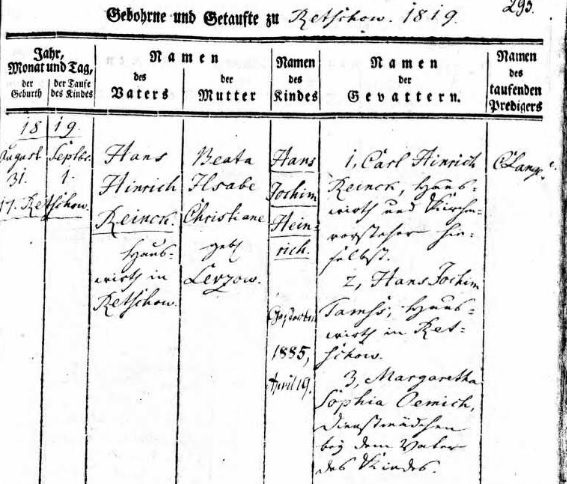 295.
Gebohrne und Getaufte zu Retschow. 1819.
Jahr,
Monat und Tag,
der Geburth
der Taufe des Kindes
Namen
des
Vaters
der
Mutter
Namen
des
Kindes
Namen
der
Gevattern.
Namen
des
taufenden
Predigers
1819.
August
31.
Septbr.
1.
17. Retschow.
Hans
Hinrich
Reinck.
Haus-
wirth in
Retschow.
Beata
Ilsabe
Christiane
geb
Levzow.
Hans
Jochim
Hein-
rich.
1885,
April 19.
1, Carl Hinrich
Reinck, Haus-
wirth und Kirchen-
vorsteher hie-
selbst.
2, Hans Jochim
Tamss, Haus-
wirth in Ret-
schow.
3, Margaretha
Sophia Oemich,
Dienstmädchen
bey dem Vater
des Kindes.
CLange.